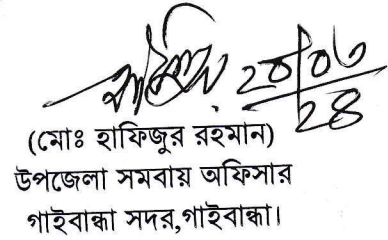 ২০/০৬/২৪
(মোঃ হাফিজুর রহমান)
উপজেলা সমবায় অফিসার
গাইবান্ধা সদর,গাইবান্ধা।